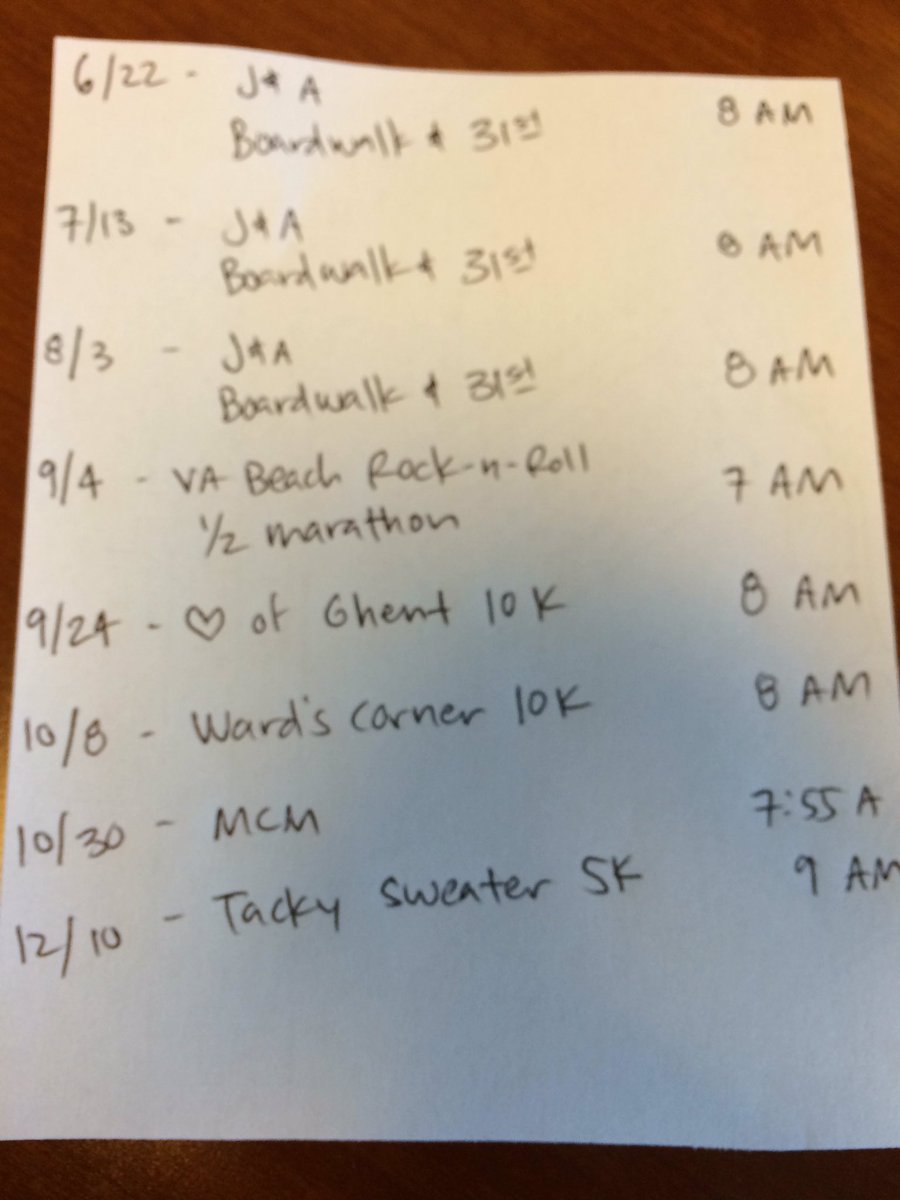 6/22 - J & A
Boardwalk & 31st 8 AM
7/13 - J & A
Boardwalk & 31st 8 AM
8/3 - J & A
Boardwalk & 31st 8 AM
9/4 - VA Beach Rock-n-Roll 7 AM
1/2 marathon
9/24 - ♡ of Ghent 10K 8 AM
10/8 - Ward's Corner 10K 8 AM
10/30 - MCM 7:55 A
12/10 - Tacky Sweater 5K 9 AM